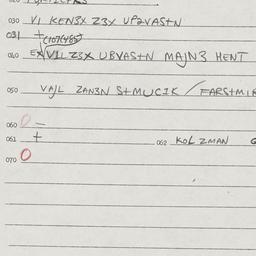 030 VI KEN3X Z3X UP2VASTN
031 +
040 EX VIL Z3X UBVASTN MAJN3 HENT
050 VAJL ZAN3N STMUCIK / FARSTMIR
060 O –
061 + 062 KOL ZMAN G
070 O